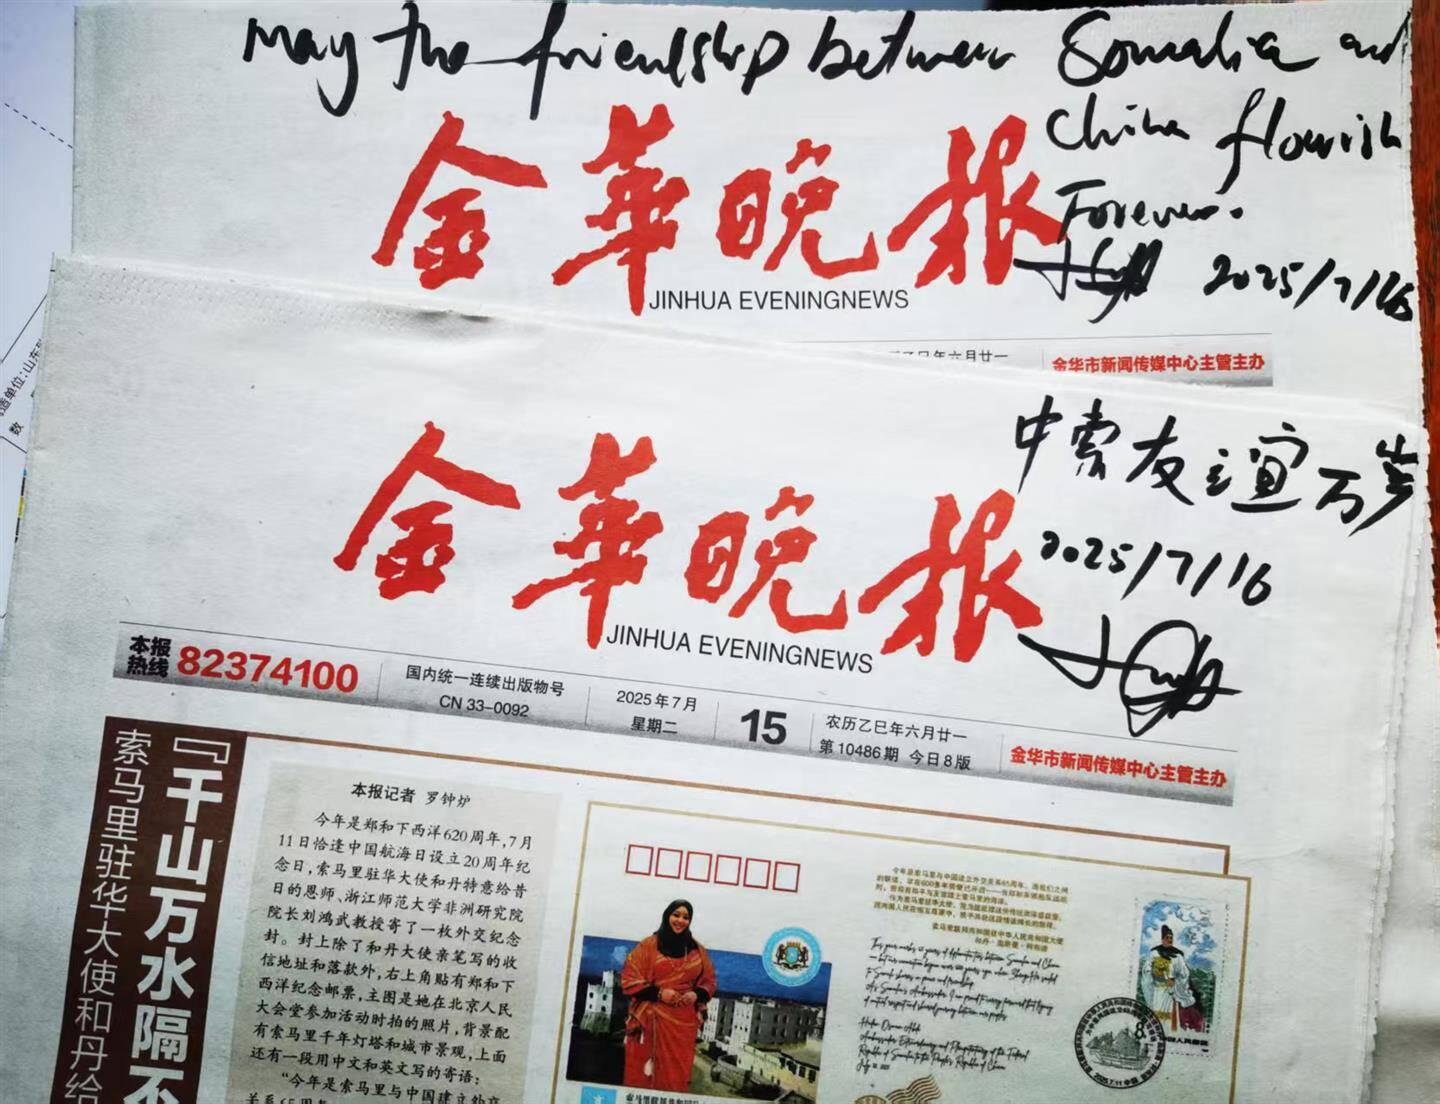 May the friendship between Somalia and
China flourish
Forever.
2025/7/16
金華晚报
JINHUA EVENINGNEWS
乙巳年六月廿一
金华市新闻传媒中心主管主办
造单位:山东
数
中索友谊万岁
2025/7/16
金華晚报
JINHUA EVENINGNEWS
本报
热线 82374100
国内统一连续出版物号
CN 33-0092
2025年7月
星期二
15
农历乙巳年六月廿一
第10486期 今日8版
金华市新闻传媒中心主管主办
『千山万水隔不
索马里驻华大使和丹给
本报记者 罗钟炉
今年是郑和下西洋620周年,7月
11日恰逢中国航海日设立20周年纪
念日,索马里驻华大使和丹特意给昔
日的恩师、浙江师范大学非洲研究院
院长刘鸿武教授寄了一枚外交纪念
封。封上除了和丹大使亲笔写的收
信地址和落款外,右上角贴有郑和下
西洋纪念邮票,主图是她在北京人民
大会堂参加活动时拍的照片,背景配
有索马里千年灯塔和城市景观,上面
还有一段用中文和英文写的寄语:
“今年是索马里与中国建立外交
关系65周年
今年是索马里与中国建立外交关系65周年,
This year marks 65 years of diplomatic ties between Somalia and China
Ambassador Extraordinary and Plenipotentiary of the Federal
Republic of Somalia to the People's Republic of China
8
中国人民邮政
2025.7.11